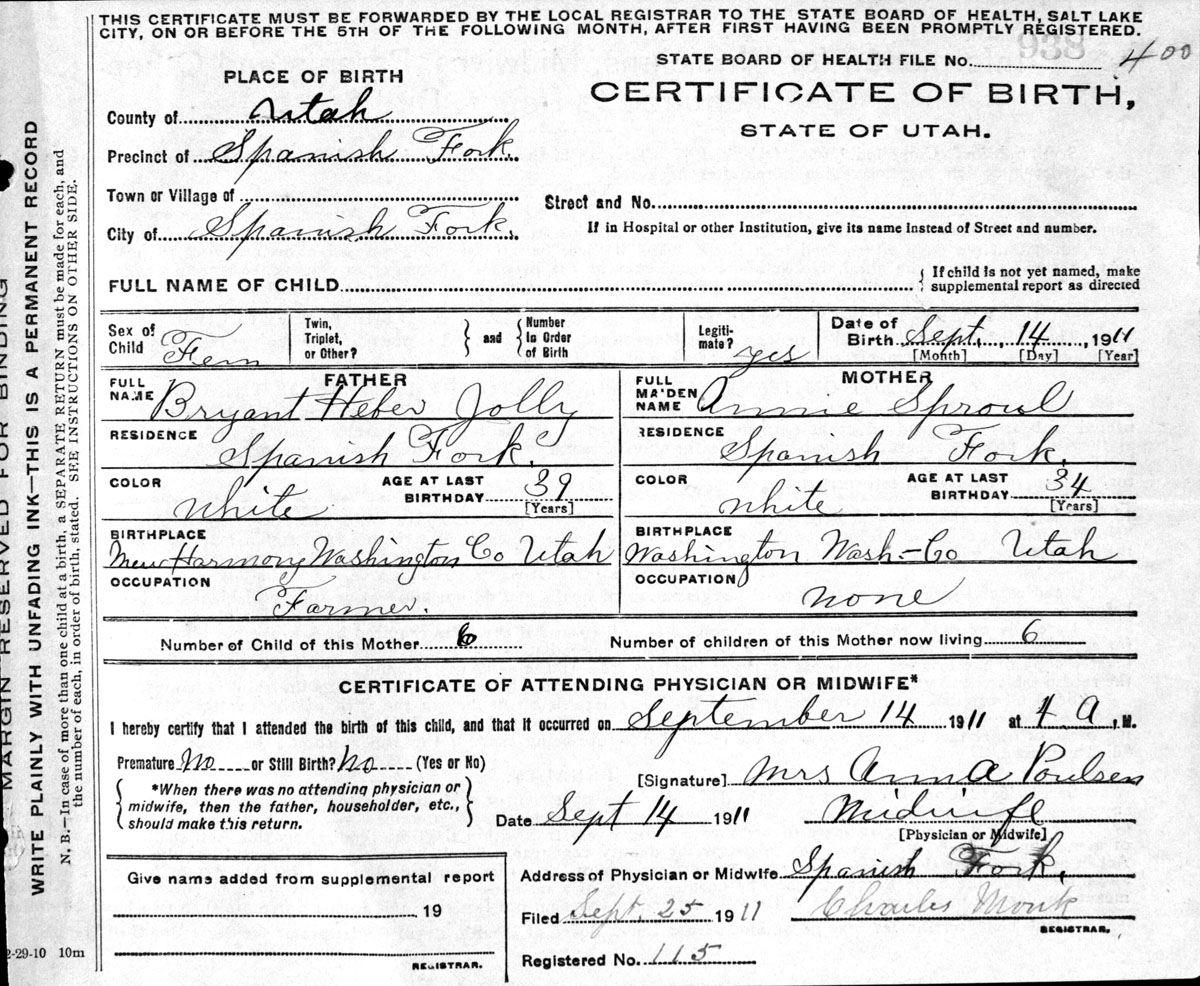 THIS CERTIFICATE MUST BE FORWARDED BY THE LOCAL REGISTRAR TO THE STATE BOARD OF HEALTH, SALT LAKE
CITY, ON OR BEFORE THE 5TH OF THE FOLLOWING MONTH, AFTER FIRST HAVING BEEN PROMPTLY REGISTERED.
STATE BOARD OF HEALTH FILE No. 400
938
PLACE OF BIRTH
CERTIFICATE OF BIRTH,
STATE OF UTAH.
County of Utah
Precinct of Spanish Fork
Town or Village of
Street and No.
City of Spanish Fork.
If in Hospital or other Institution, give its name instead of Street and number.
FULL NAME OF CHILD
{ If child is not yet named, make
supplemental report as directed
Sex of Child Fem
Twin, Triplet, or Other? } and { Number in Order of Birth
Legitimate? yes
Date of Birth Sept. 14, 1911
[Month] [Day] [Year]
FATHER
FULL NAME Bryant Heber Jolly
RESIDENCE
Spanish Fork.
COLOR White
AGE AT LAST BIRTHDAY 39
[Years]
BIRTHPLACE
New Harmony Washington Co Utah
OCCUPATION
Farmer.
MOTHER
FULL MAIDEN NAME Annie Sproul
RESIDENCE
Spanish Fork.
COLOR White
AGE AT LAST BIRTHDAY 34
[Years]
BIRTHPLACE
Washington Wash-Co Utah
OCCUPATION
none
Number of Child of this Mother 6
Number of children of this Mother now living 6
CERTIFICATE OF ATTENDING PHYSICIAN OR MIDWIFE*
I hereby certify that I attended the birth of this child, and that it occurred on September 14 1911 at 4 A. M.
Premature No or Still Birth? No (Yes or No)
{ *When there was no attending physician or
midwife, then the father, householder, etc.,
should make this return. }
[Signature] Mrs Anna Poulsen
Date Sept 14 1911 Midwife
[Physician or Midwife]
Address of Physician or Midwife Spanish Fork.
Filed Sept. 25 1911 Charles Monk
REGISTRAR.
Registered No. 115
Give name added from supplemental report
19
REGISTRAR.
2-29-10 10m
MARGIN RESERVED FOR BINDING
WRITE PLAINLY WITH UNFADING INK—THIS IS A PERMANENT RECORD
N. B.—In case of more than one child at a birth, a SEPARATE RETURN must be made for each, and
the number of each, in order of birth, stated. SEE INSTRUCTIONS ON OTHER SIDE.